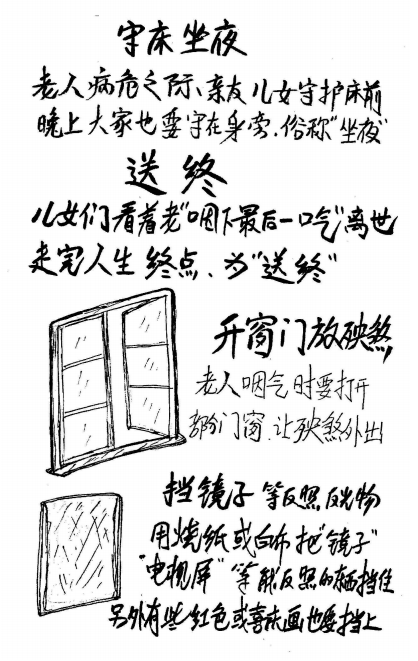 守床坐夜
老人病危之际、亲友儿女守护床前
晚上大家也要守在身旁.俗称"坐夜"
送终
儿女们看着老"咽下最后一口气"离世
走完人生终点、为"送终"
开窗门放殃煞,
老人咽气时要打开
部分门窗.让殃煞外出
挡镜子等反照反光物
用烧纸或白布把"镜子"
"电视屏"等能反照的东西挡住
另外有些红色或喜庆画也要挡上